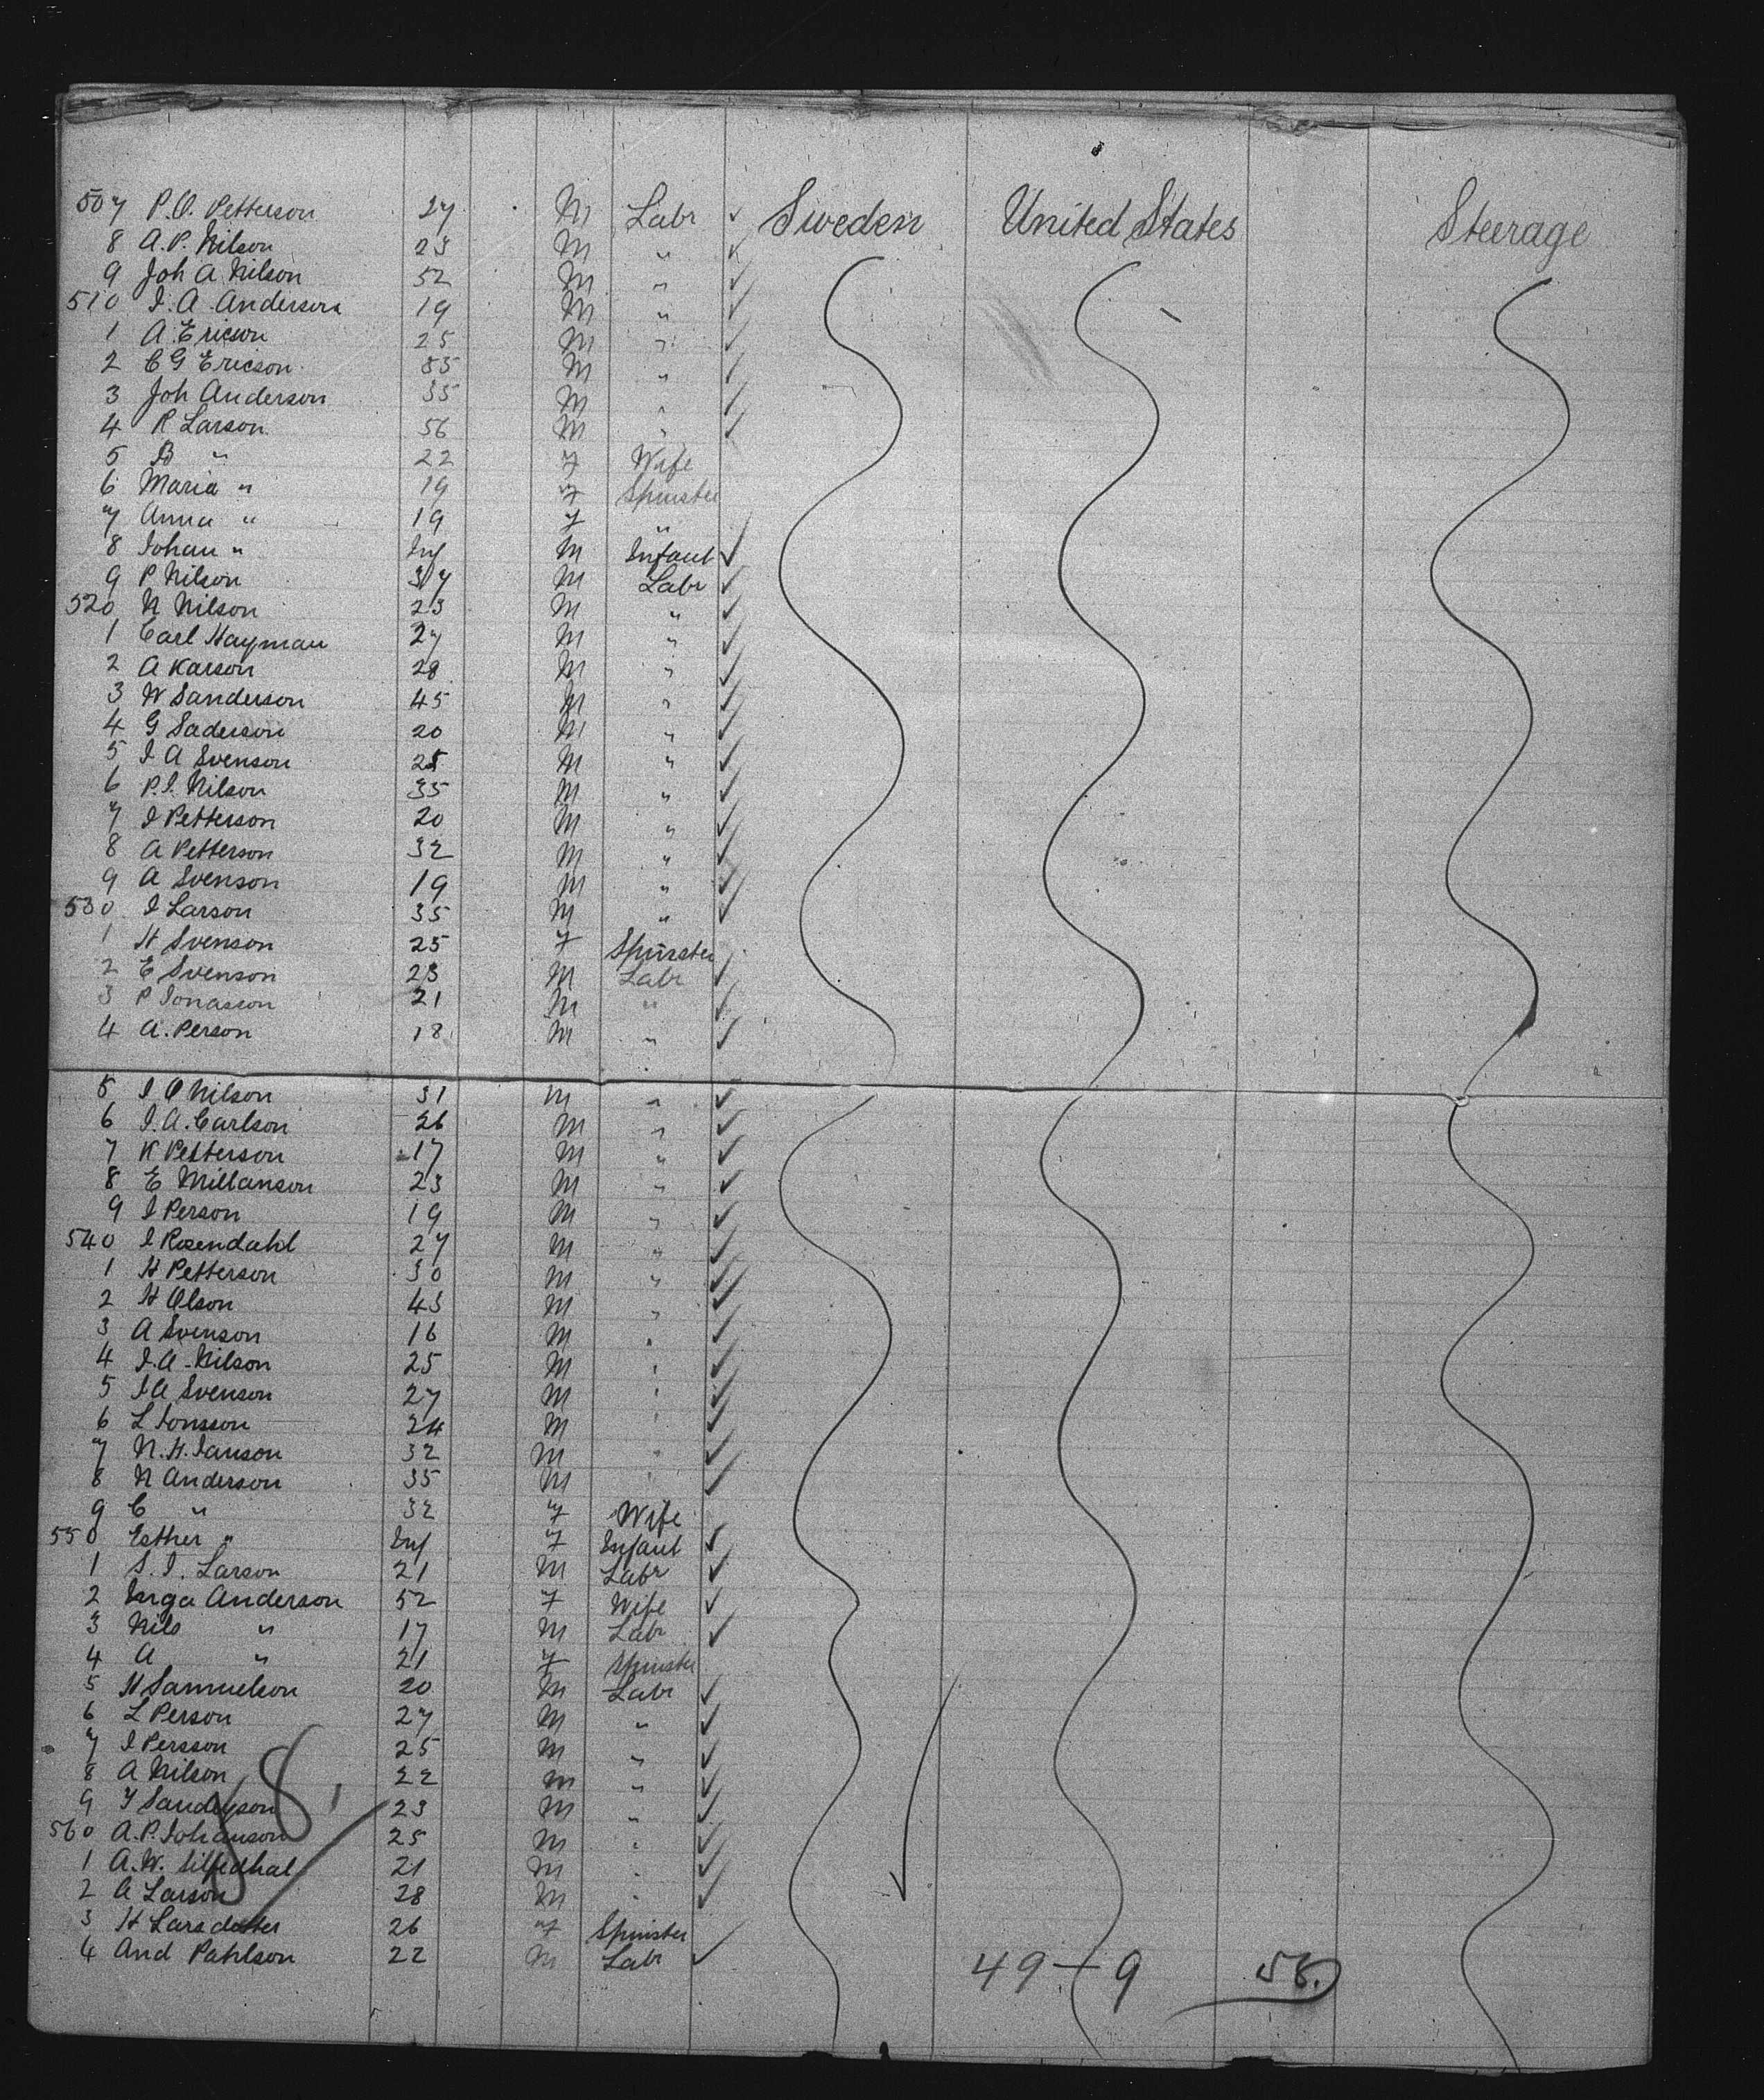 507 P.O. Petterson 27 M Labr ✓ Sweden United States Steerage
8 A.P. Nilson 23 M " ✓
9 Joh A Nilson 52 M " ✓
510 I.A. Anderson 19 M " ✓
1 A. Ericson 25 M " ✓
2 C G Ericson 55 M " ✓
3 Joh Anderson 35 M " ✓
4 P Larson 56 M " ✓
5 B " 22 F Wife
6 Maria " 19 F Spinster
7 Anna " 19 F "
8 Johan " Inf M Infant ✓
9 P Nilson 37 M Labr ✓
520 N Nilson 23 M " ✓
1 Carl Hayman 27 M " ✓
2 A Karson 28 M " ✓
3 W Sanderson 45 M " ✓
4 G Saderson 20 M " ✓
5 I A Svenson 25 M " ✓
6 P.I. Nilson 35 M " ✓
7 I Petterson 20 M " ✓
8 A Petterson 32 M " ✓
9 A Svenson 19 M " ✓
530 I Larson 35 M " ✓
1 H Svenson 25 F Spinster
2 E Svenson 23 M Labr ✓
3 P Jonasson 21 M " ✓
4 A. Person 18 M " ✓
5 I O Nilson 31 M " ✓
6 I.A. Carlson 26 M " ✓
7 K Petterson 17 M " ✓
8 E Millanson 23 M " ✓
9 I Person 19 M " ✓
540 I Rosendahl 27 M " ✓
1 H Petterson 30 M " ✓
2 H Olson 43 M " ✓
3 A Svenson 16 M " ✓
4 I.A. Nilson 25 M " ✓
5 I A Svenson 27 M " ✓
6 L Jonsson 24 M " ✓
7 N.H. Janson 32 M " ✓
8 N Anderson 35 M " ✓
9 C " 32 F Wife
550 Esther " Inf F Infant ✓
1 S.I. Larson 21 M Labr ✓
2 Inga Anderson 52 F Wife ✓
3 Nils " 17 M Labr ✓
4 A " 21 F Spinster
5 H Samuelson 20 M Labr ✓
6 L Person 27 M " ✓
7 I Persson 25 M " ✓
8 A Nilson 22 M " ✓
9 Sanderson 23 M " ✓
560 A.P. Johanson 25 M " ✓
1 A.W. 21 M " ✓
2 A Larson 28 M " ✓
3 H Larsdotter 26 F Spinster
4 And Pahlson 22 M Labr ✓
49 – 9 58.